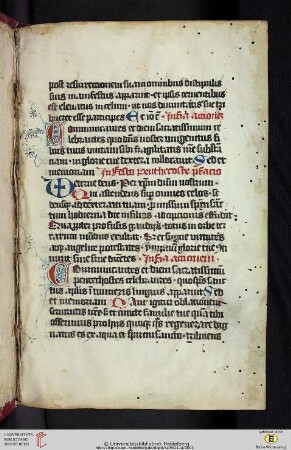 post resurrectionem suam omnibus discipulis
suis manifestus apparuit et ipsis cernentibus
est elevatus in celum ut nos divinitatis sue tri
bueret esse participes Et io
Communicantes et diem sacratissimum ce
lebrantes quo dominus noster unigenitus fi
lius tuus unitam sibi fragilitatis nre substan
in glorie tue dextera collocavit Sed et
memoriam In festo penthecostes
eterne deus Per xpm dnm nostrum
Qui ascendens super omnes celos se
densque ad dexteram tuam promissum spm san
tum hodierna die in filios adoptionis effudit
Quapropter profusis gaudiis totus in orbe ter
rarum mundus exultat Sed et superne virtutes
atque angelice potestates ympnum glorie tue con
sine fine dicentes Infra actionem
Communicantes et diem sacratissimum
penthecostes celebrantes quo sps sanc
tus aplis innumeris linguis apparuit Sed
et memoriam Hanc igitur oblationem
servitutis nre sed et cuncte familie tue quam tibi
offerimus pro hiis quoque quos regenerare dig
natus es ex aqua et spiritu sancto tribuens
UNIVERSITÄTS-
BIBLIOTHEK
HEIDELBERG
© Universitätsbibliothek Heidelberg
Baden-Württemberg